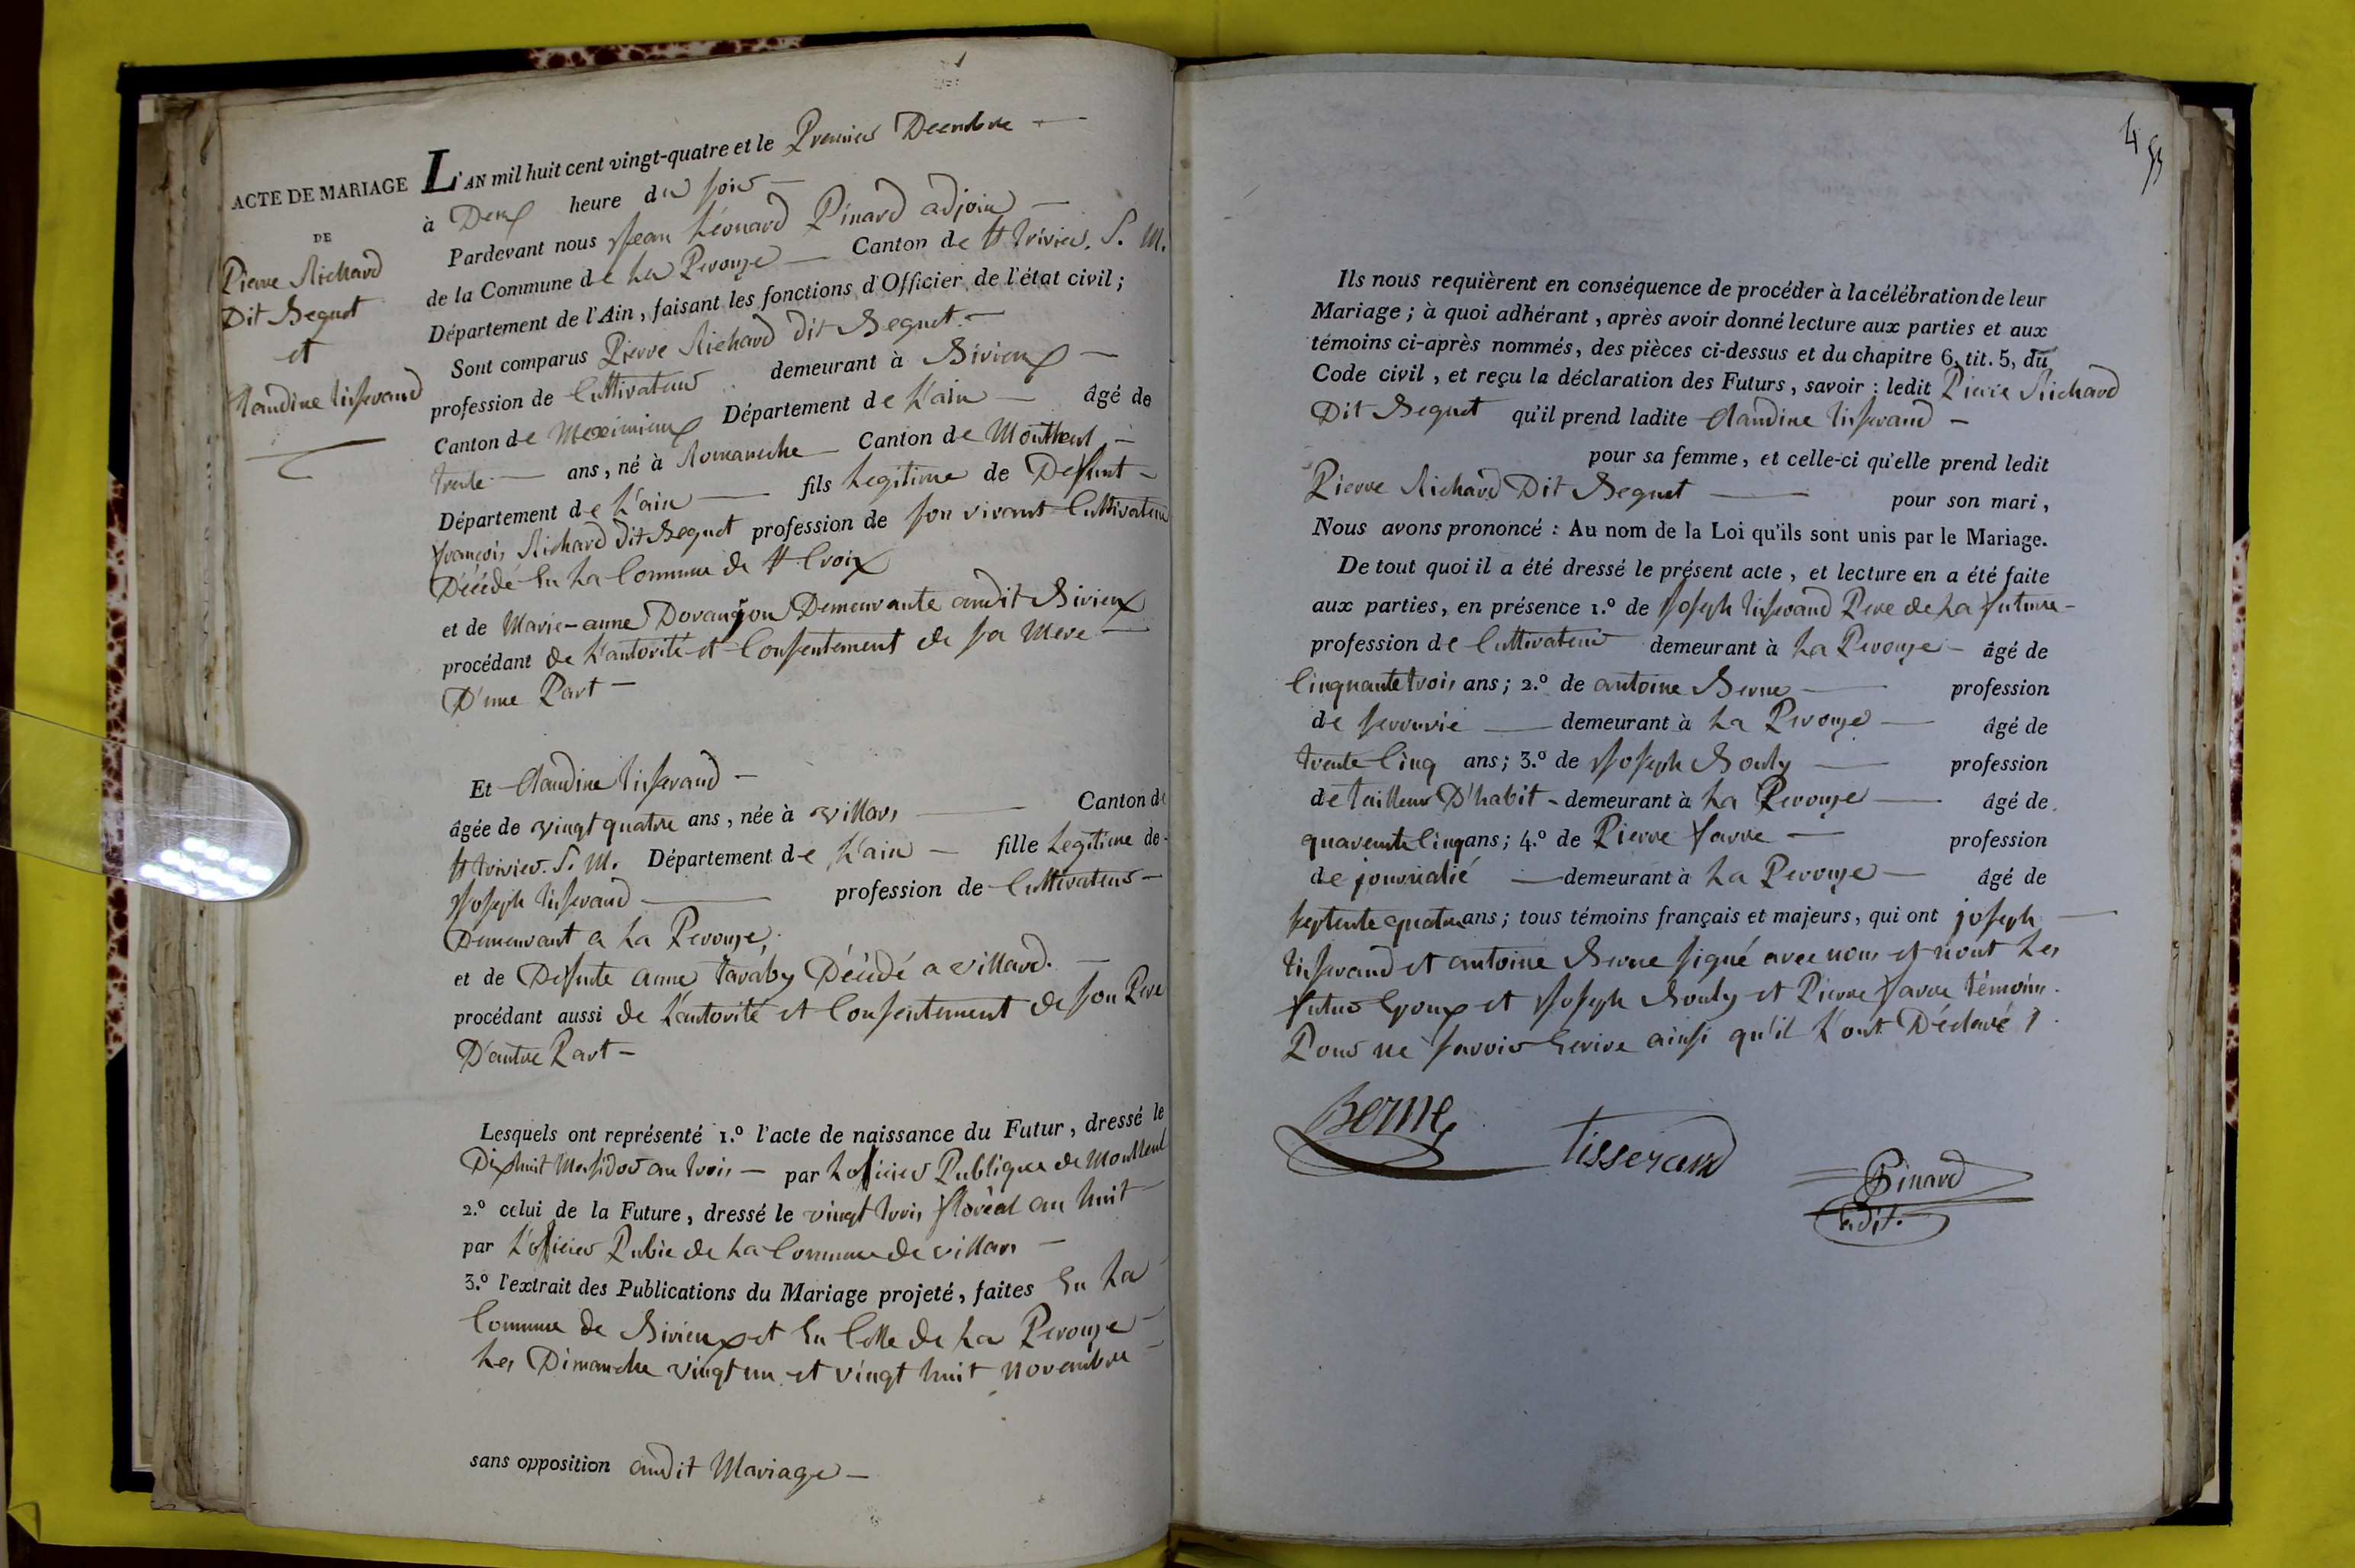 ACTE DE MARIAGE
DE
Pierre Richard
Dit Beguet
et
Claudine tisserand
L'AN mil huit cent vingt-quatre et le Premier Decembre
à Deux heure du soir
Pardevant nous Jean Léonard Pinard adjoin
de la Commune de La Perouze Canton de St trivier. S. M.
Département de l'Ain, faisant les fonctions d'Officier de l'état civil;
Sont comparus Pierre Richard dit Beguet
profession de Cultivateur demeurant à Birieux
Canton de Meximieux Département de L'ain âgé de
trente ans, né à Romaneche Canton de Montluel
Département de L'ain fils Legitime de Defunt
françois Richard dit Beguet profession de son vivant Cultivateur
Décédé En La Commune de Ste Croix
et de Marie-anne Dovançon Demeurante audit Birieux
procédant de L'autorité et Consentement de sa Mere
D'une Part
Et Claudine tisserand
âgée de vingt quatre ans, née à villars Canton de
St trivier. S. M. Département de L'ain fille Legitime de
Joseph tisserand profession de Cultivateur
Demeurant a La Perouze,
et de Defunte anne taraby Décédé a villard.
procédant aussi de L'autorité et Consentement de son Pere
D'autre Part
Lesquels ont représenté 1.º l'acte de naissance du Futur, dressé le
Dix huit Messidor an trois par Lofficier Publique de Montluel
2.º celui de la Future, dressé le vingt trois floréal an huit
par L'officier Public de La Commune de villars
3.º l'extrait des Publications du Mariage projeté, faites En La
Commune de Birieux et En Celle de La Perouze
Les Dimanche vingt un et vingt huit novembre
sans opposition audit Mariage
4
Ils nous requièrent en conséquence de procéder à la célébration de leur
Mariage; à quoi adhérant, après avoir donné lecture aux parties et aux
témoins ci-après nommés, des pièces ci-dessus et du chapitre 6, tit. 5, du
Code civil, et reçu la déclaration des Futurs, savoir: ledit Pierre Richard
Dit Beguet qu'il prend ladite Claudine tisserand
pour sa femme, et celle-ci qu'elle prend ledit
Pierre Richard Dit Beguet pour son mari,
Nous avons prononcé: Au nom de la Loi qu'ils sont unis par le Mariage.
De tout quoi il a été dressé le présent acte, et lecture en a été faite
aux parties, en présence 1.º de Joseph tisserand Pere de La future
profession de Cultivateur demeurant à La Perouze âgé de
Cinquante trois ans; 2.º de antoine Berne profession
de serrurié demeurant à La Perouze âgé de
trente Cinq ans; 3.º de Joseph Bouly profession
de tailleur D'habit demeurant à La Perouze âgé de
quarente Cinq ans; 4.º de Pierre favre profession
de journalié demeurant à La Perouze âgé de
septente quatre ans; tous témoins français et majeurs, qui ont joseph
tisserand et antoine Berne signé avec nous et nont Les
futur Epoux et Joseph Bouly et Pierre favre témoins.
Pour ne savoir Ecrire ainsi qu'il L'ont Déclaré
Berne
tisserand
Pinard
adjt.